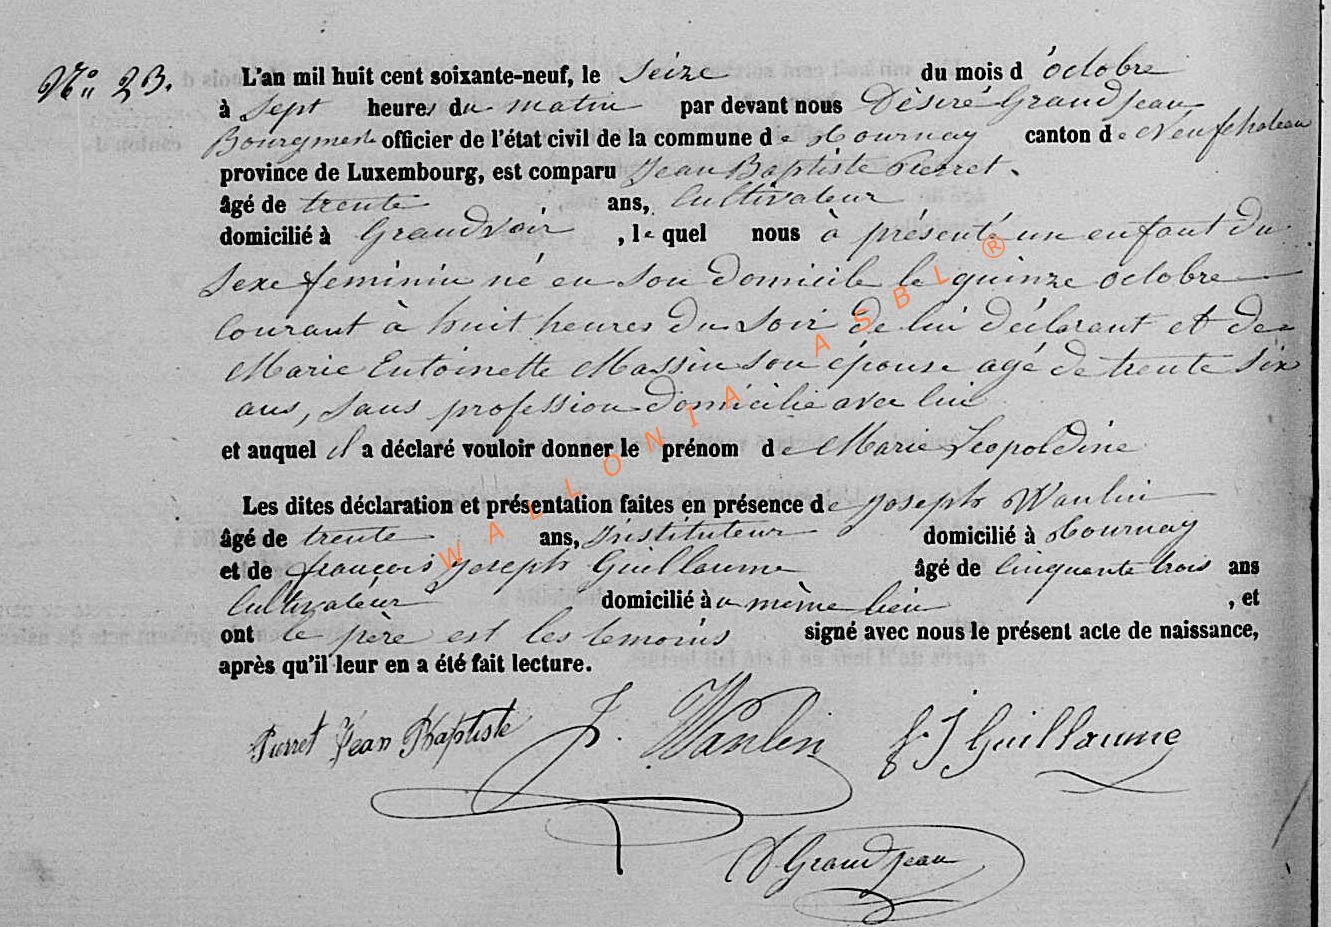 N° 23. L'an mil huit cent soixante-neuf, le Seize du mois d'octobre
à Sept heures du matin par devant nous Désiré Grandjean
Bourgmestre officier de l'état civil de la commune de Tournay canton de Neufchateau
province de Luxembourg, est comparu Jean Baptiste Pierret.
âgé de trente ans, Cultivateur
domicilié à Grandvoir, le quel nous à présenté un enfant du
Sexe feminin né en son domicile le quinze octobre
Courant à huit heures du Soir de lui déclarant et de
Marie Entoinette Massin son épouse agé de trente six
ans, Sans profession domicilié avec lui
et auquel il a déclaré vouloir donner le prénom de Marie Leopoldine
Les dites déclaration et présentation faites en présence de Joseph Wanlin
âgé de trente ans, Instituteur domicilié à Tournay
et de françois Joseph Guillaume âgé de Cinquante trois ans
Cultivateur domicilié au même lieu, et
ont le père est les temoins signé avec nous le présent acte de naissance,
après qu'il leur en a été fait lecture.
Pierret Jean Baptiste J. Wanlin f. J Guillaume
D Grandjean
WALLONIA ASBL ®